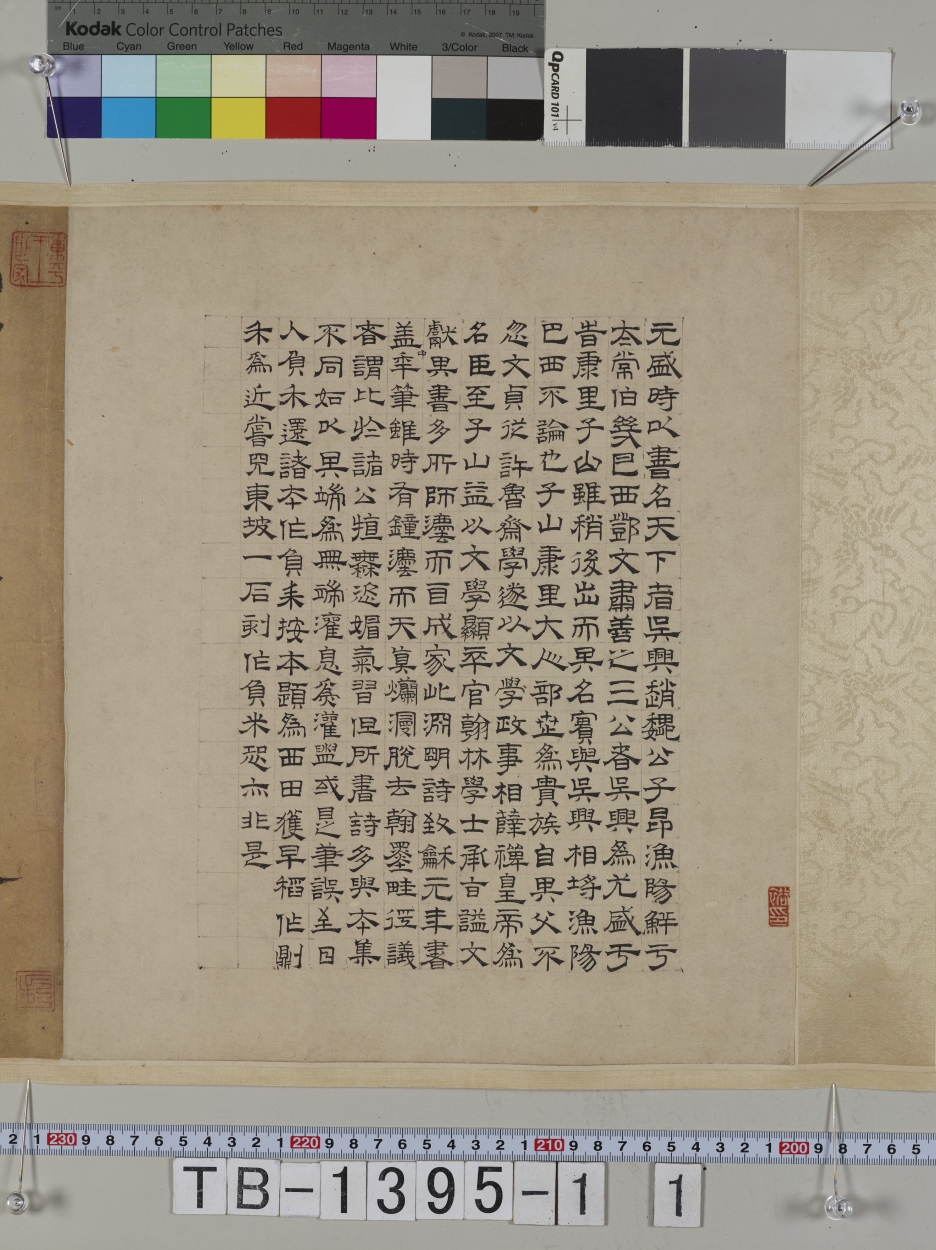 Kodak Color Control Patches
© Kodak, 2007 TM: Kodak
Blue Cyan Green Yellow Red Magenta White 3/Color Black
QpCARD 101 v4
元盛時以書名天下者吳興趙魏公子昂漁陽鮮于
太常伯幾巴西鄧文肅善之三公者吳興為尤盛于
昔康里子山雖稍後出而其名實與吳興相埒漁陽
巴西不論也子山康里大人部世為貴族自其父不
忽文貞從許魯齋學遂以文學政事相薛禪皇帝為
名臣至子山益以文學顯卒官翰林學士承旨謚文
獻其書多所師灋而自成家此淵明詩致龢元年書
盖中年筆雖時有鐘灋而天真爛漫脫去翰墨畦徑議
者謂比於諸公無姿媚氣習但所書詩多與本集
不同如以其端為無端濯息為灌盥或是筆誤至日
入負禾還諸本作負耒按本題為西田穫早稻作則
禾為近嘗見東坡一石刻作負米恐亦非是
TB-1395-1 1